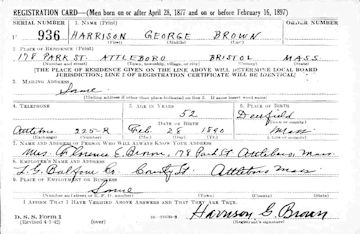 REGISTRATION CARD—(Men born on or after April 28, 1877 and on or before February 16, 1897)
SERIAL NUMBER 1. NAME (Print) ORDER NUMBER
U 936 HARRISON GEORGE BROWN
(First) (Middle) (Last)
2. PLACE OF RESIDENCE (Print)
178 PARK ST. ATTLEBORO BRISTOL MASS
(Number and street) (Town, township, village, or city) (County) (State)
[THE PLACE OF RESIDENCE GIVEN ON THE LINE ABOVE WILL DETERMINE LOCAL BOARD
JURISDICTION; LINE 2 OF REGISTRATION CERTIFICATE WILL BE IDENTICAL]
3. MAILING ADDRESS
Same
(Mailing address if other than place indicated on line 2. If same insert word same)
4. TELEPHONE 5. AGE IN YEARS 6. PLACE OF BIRTH
52 Deerfield
DATE OF BIRTH (Town or county)
Attleboro 225-R Feb 28 1890 Mass
(Exchange) (Number) (Mo.) (Day) (Yr.) (State or country)
7. NAME AND ADDRESS OF PERSON WHO WILL ALWAYS KNOW YOUR ADDRESS
Mrs. Florence E. Brown, 178 Park St Attleboro, Mass
8. EMPLOYER'S NAME AND ADDRESS
L. G. Balfour Co County St. Attleboro Mass
9. PLACE OF EMPLOYMENT OR BUSINESS
Same
(Number and street or R. F. D. number) (Town) (County) (State)
I AFFIRM THAT I HAVE VERIFIED ABOVE ANSWERS AND THAT THEY ARE TRUE.
D. S. S. Form 1
(Revised 4-1-42) (over)
Harrison G. Brown